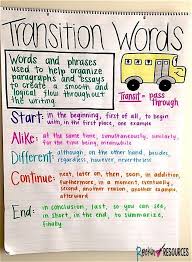 Transition Words
Words and phrases
used to help organize
paragraphs and essays
to create a smooth and
logical flow throughout
the writing.
Transit = pass
Through
Start: in the beginning, first of all, to begin
with, in the first place, one example
Alike: at the same time, simultaneously, similarly,
for the time being, meanwhile
Different: although, on the other hand, besides,
regardless, however, nevertheless
Continue: next, later on, then, soon, in addition,
furthermore, in a moment, eventually,
second, another reason, another example,
afterward
End: in conclusion, last, so you can see,
in short, in the end, to summarize,
finally
Rockin RESOURCES